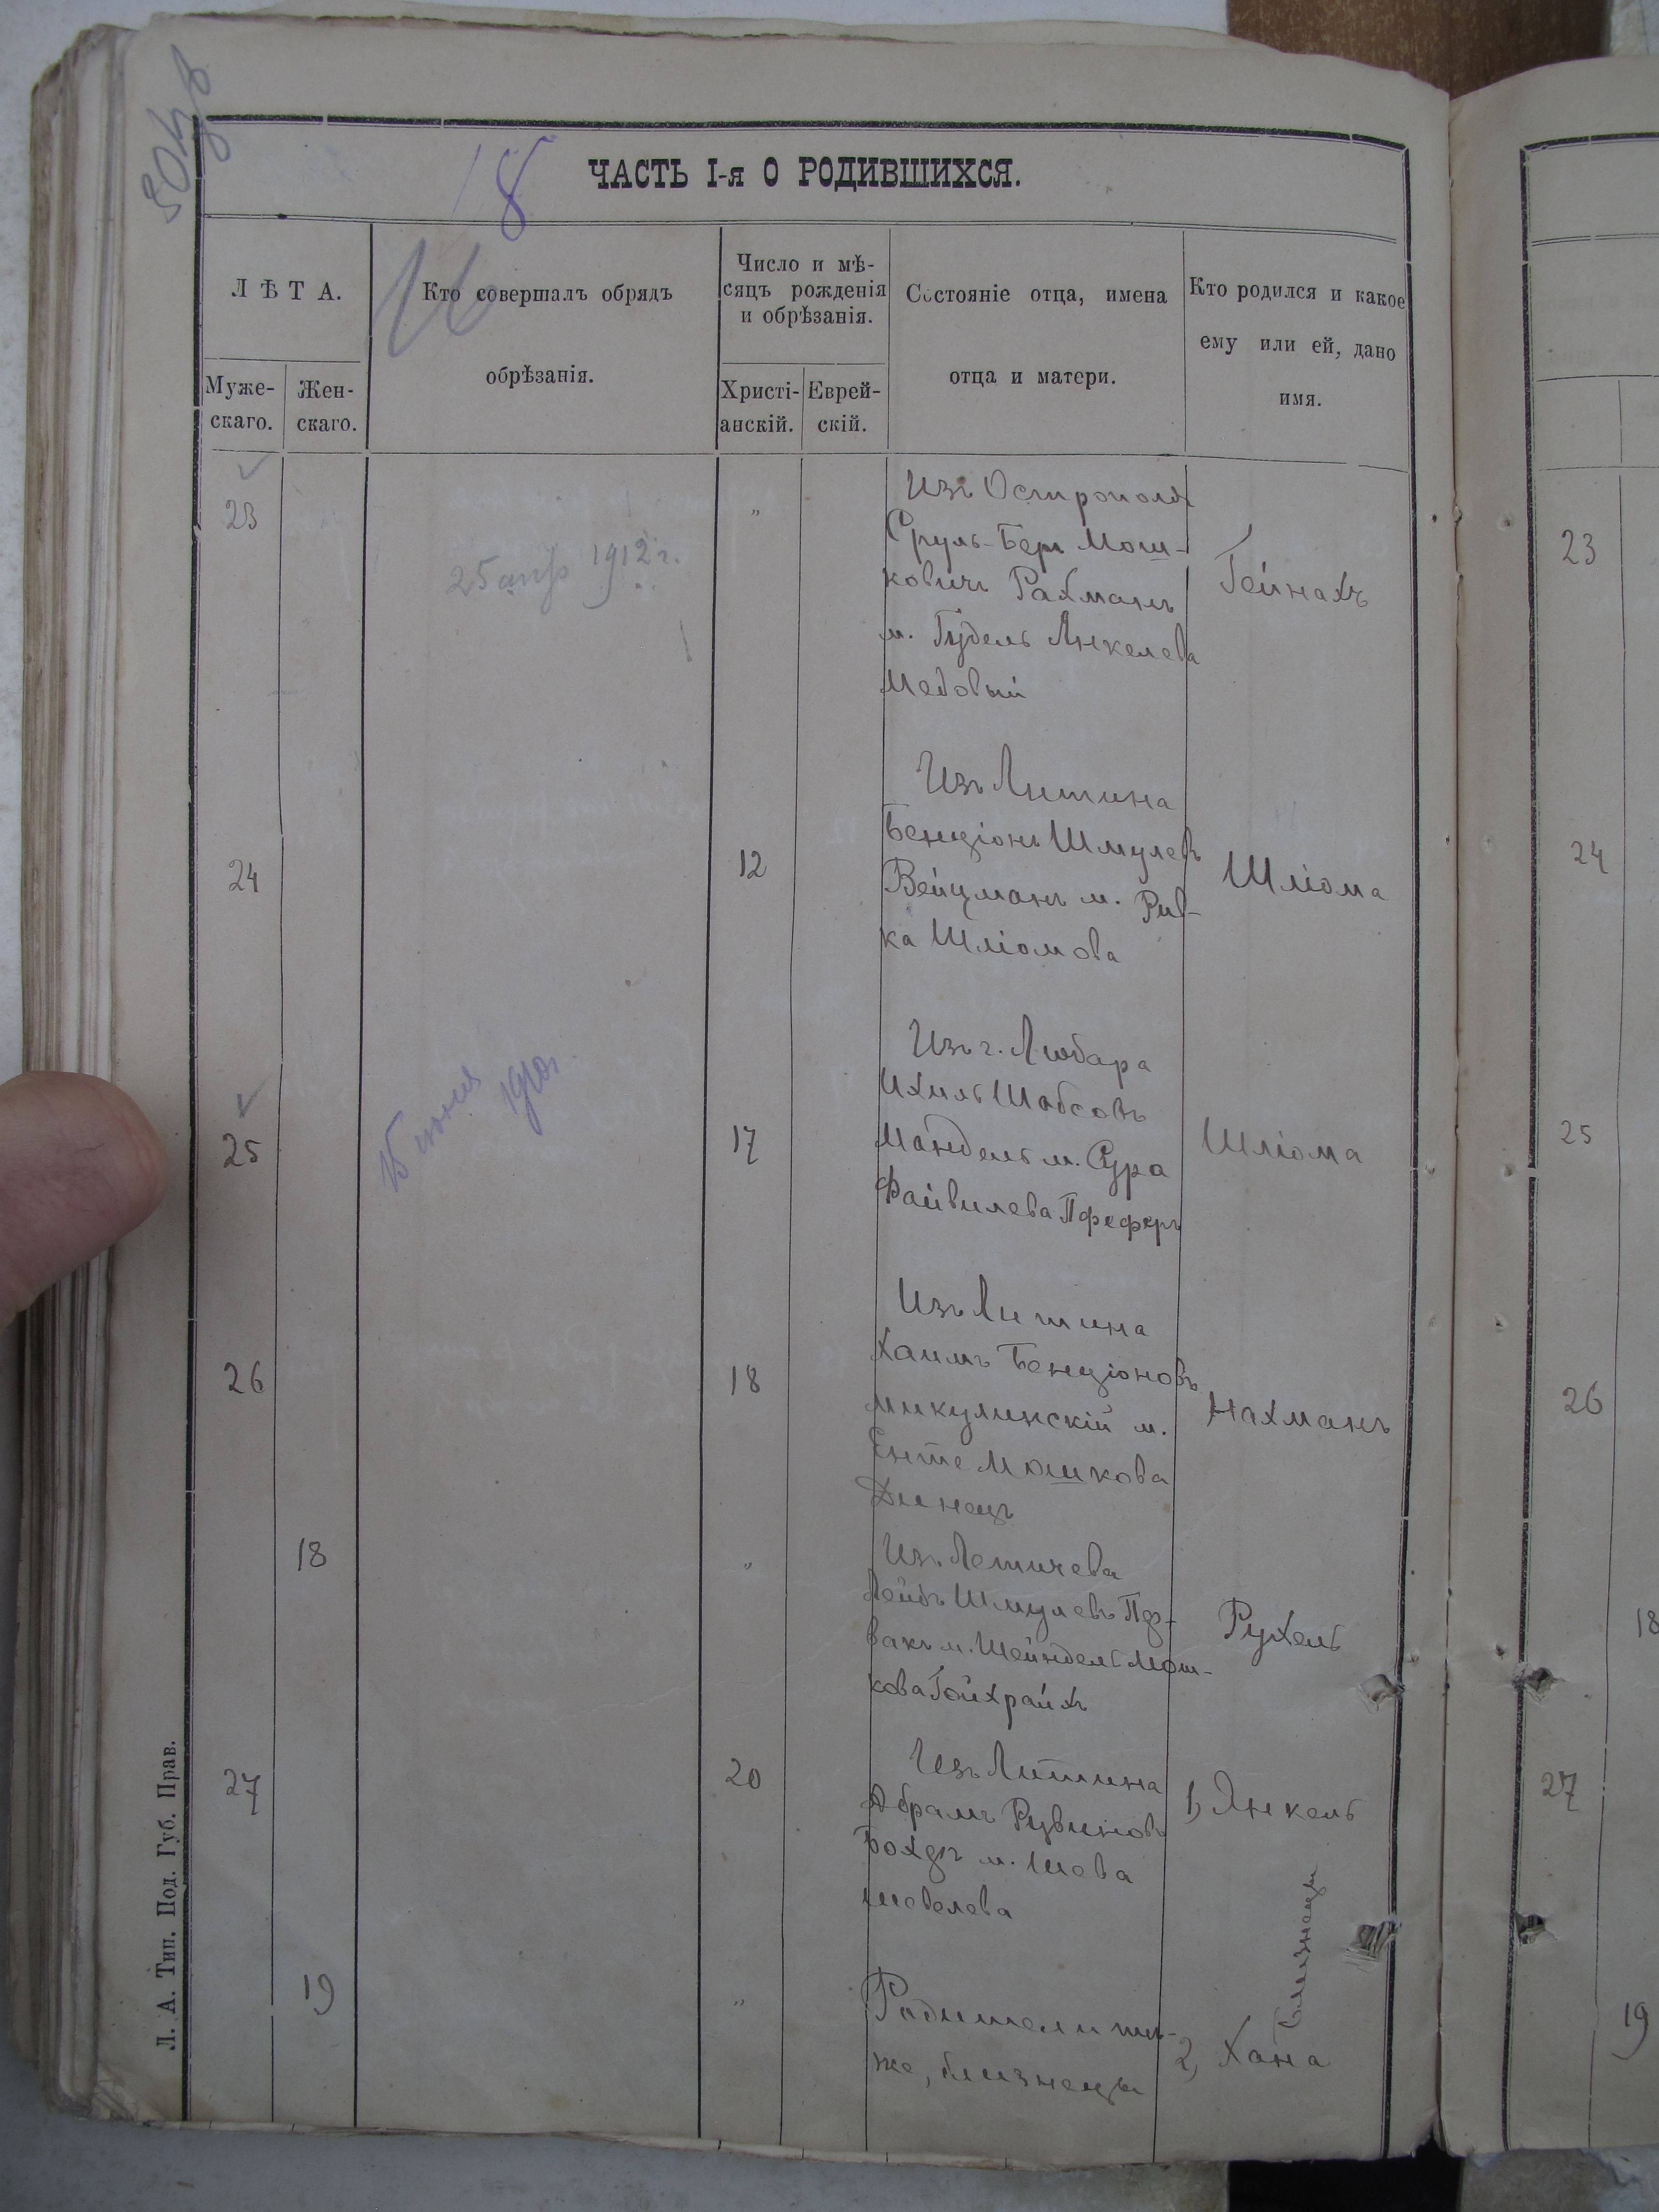 18
16
ЧАСТЬ I-я О РОДИВШИХСЯ.
ЛѢТА.
Муже-
скаго.
Жен-
скаго.
Кто совершалъ обрядъ
обрѣзанія.
Число и мѣ-
сяцъ рожденія
и обрѣзанія.
Христі-
анскій.
Еврей-
скій.
Состояніе отца, имена
отца и матери.
Кто родился и какое
ему или ей, дано
имя.
23
25 апр 1912 г.
"
Изъ Острополя
Сруль-Беръ Мош-
ковичъ Рахманъ
м. Гудель Янкелева
Медовый
Гейнахъ
23
24
12
Изъ Литина
Бенціонъ Шмулевъ
Вейцманъ м. Рив-
ка Шліомова
Шліома
24
25
15 іюня
17
Изъ г. Любара
Ихиль Шабсовъ
Мандель м. Сура
Файвилева Пфеферъ
Шліома
25
26
18
Изъ Литина
Хаимъ Бенціоновъ
Микулинскій м.
Енте Мошкова
Динецъ
Нахманъ
26
18
"
Изъ Летичева
Лейбъ Шмулевъ
м. Шейндель Мош-
кова Гойхрайхъ
Рухель
18
27
20
Изъ Литина
Абрамъ Рувиновъ
м. Шева
Шевелева
1, Янкель
27
близнецы
19
"
Родители тѣ-
же, близнецы
2, Хана
19
Л. А. Тип. Под. Губ. Прав.